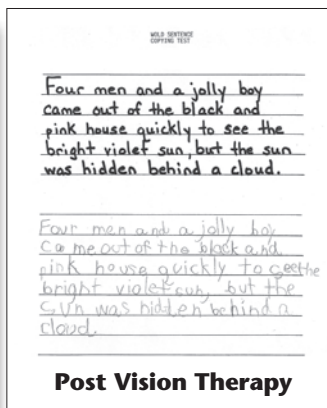 WOLD SENTENCE
COPYING TEST
Four men and a jolly boy
came out of the black and
pink house quickly to see the
bright violet sun, but the sun
was hidden behind a cloud.
Four men and a jolly boy
Came out of the black and
pink house quickly to ceethe
bright violet sun, but the
SUn was hidden behind a
cloud.
Post Vision Therapy